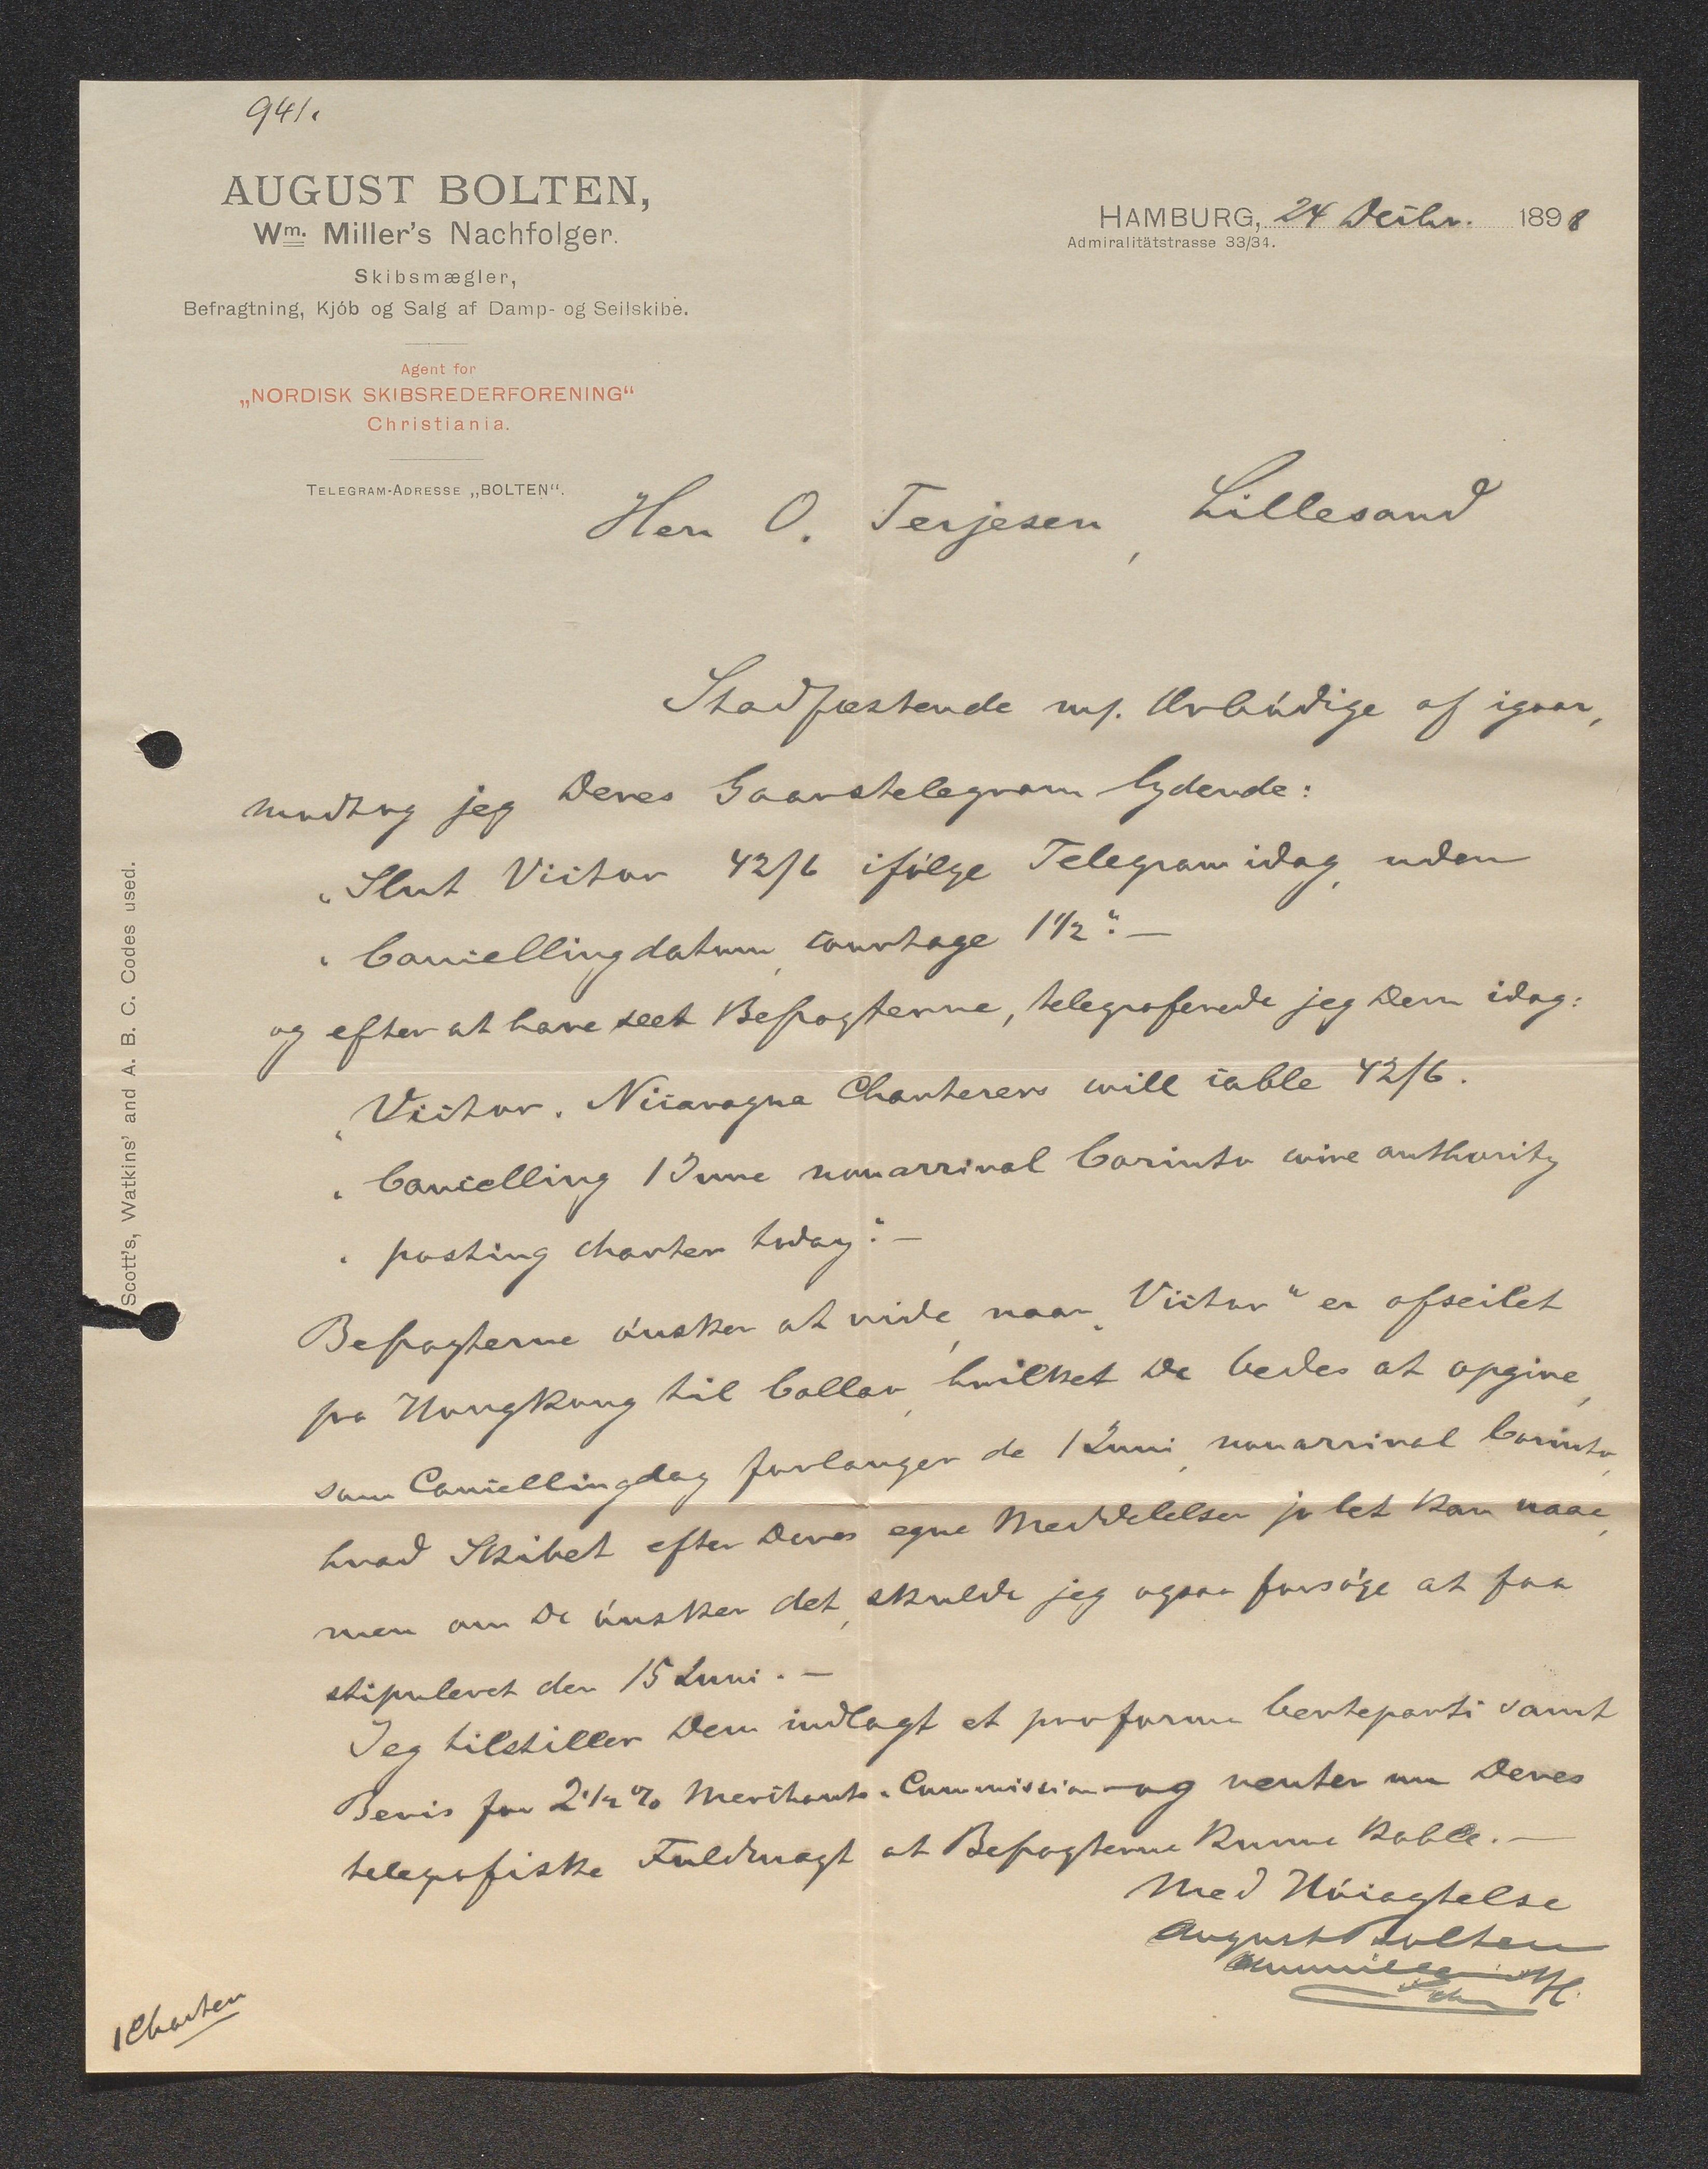 941.
AUGUST BOLTEN,
Wm. Miller's Nachfolger.
Skibsmægler,
Befragtning, Kjób og Salg af Damp- og Seilskibe.
Agent for
„NORDISK SKIBSREDERFORENING“
Christiania.
TELEGRAM-ADRESSE „BOLTEN“.
HAMBURG, 24 Decbr. 1898
Admiralitätstrasse 33/34.
Herr O. Terjesen, Lillesand
Stadfæstende mj. Ærbódige af igaar,
modtog jeg Deres Gaarstelegram lydende:
„Slut Victor 42/6 ifólge Telegram idag, uden
„Cancellingdatum, courtage 1 1/2“. —
og efter at have seet Befragterne, telegraferede jeg Dem idag:
„Victor. Nicaragua Charterers will cable 42/6.
„Cancelling 1 June nonarrival Corinto wire authority
„posting charter today“. —
Befragterne ónsker at vide, naar „Victor“ er afseilet
fra Hongkong til Callao, hvilket De bedes at opgive,
som Cancellingdag forlanger de 1 Juni, nonarrival Corinto,
hvad Skibet efter Deres egne Meddelelser jo let kan naae,
men om De ónsker det, skulde jeg ogsaa forsóge at faa
stipuleret den 15 Juni. —
Jeg tilstiller Dem indlagt et proforma Certeparti samt
Bevis for 2 1/2 % Merchants-Commission og venter nu Deres
telegrafiske Fuldmagt at Befragterne kunne kable. —
Med Hóiagtelse
August Bolten
1 Charter
Scott's, Watkins' and A. B. C. Codes used.